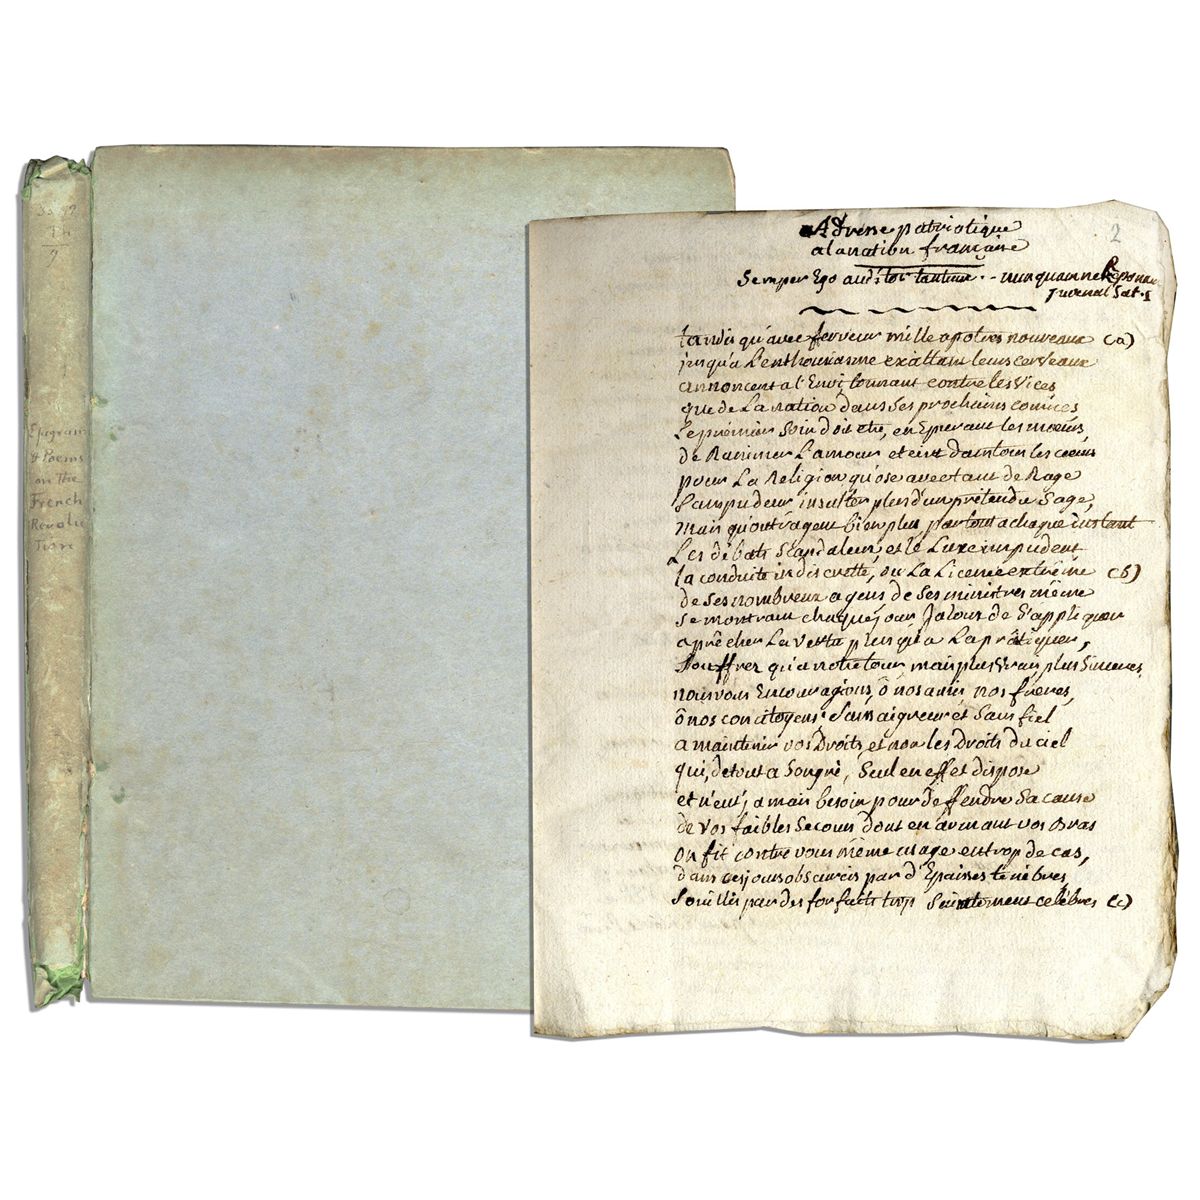 Epigrams
& Poems
on the
French
Revolu
tion
2
Adresse patriotique
a la nation française
Semper Ego auditor tantum .. nunquamne Reponam
Juvenal Sat. 1
tandis qu'avec ferveur mille apotres nouveaux (a)
jusqu'a L'enthousiasme exaltant leurs cerveaux
annoncent a l'Envi tonnant contre les Vices
que de La nation dans ses prochains comices
Le prémier soin doit etre, en Epurant les mœurs,
de Ranimer L'amour et dans tous les cœurs
pour La Religion qu'ose avec tant de Rage
L'impudeur insulter plus d'un prétendu Sage,
mais qu'outragent bien plus partout a chaque instant
Les débats scandaleux, et le Luxe impudent
la conduite indiscrette, ou La Licence extrême (b)
de ses nombreux agens de ses ministres même
se montrant chaque jour Jaloux de s'appliquer
a prêcher La vertu plus qu'a La pratiquer,
Souffrez qu'a notre tour mais plus vrais plus Sinceres,
nous vous Encouragions, ô nos amis nos frères,
ô nos concitoyens sans aigreur et sans fiel
a maintenir vos Droits et non les Droits du ciel
qui, de tout a son gré, Seul en effet dispose
et n'eut jamais besoin pour deffendre sa cause
de vos faibles Secours dont en armant vos Bras
on fit contre vous même usage en trop de cas,
dans ces jours obscurcis par d'Epaisses ténèbres
Souillés par des forfaits trop Saintement celèbres (c)